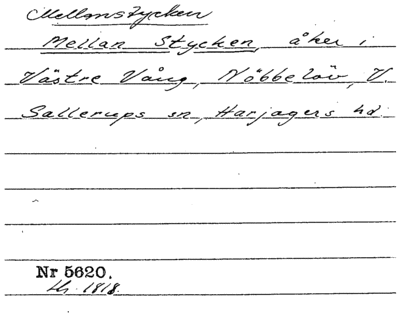 Mellanstycken
Mellan Stycken, åker i
Västre Vång, Nöbbelöv, V.
Sallerups sn, Harjagers hd
Nr 5620.
Lh. 1818.